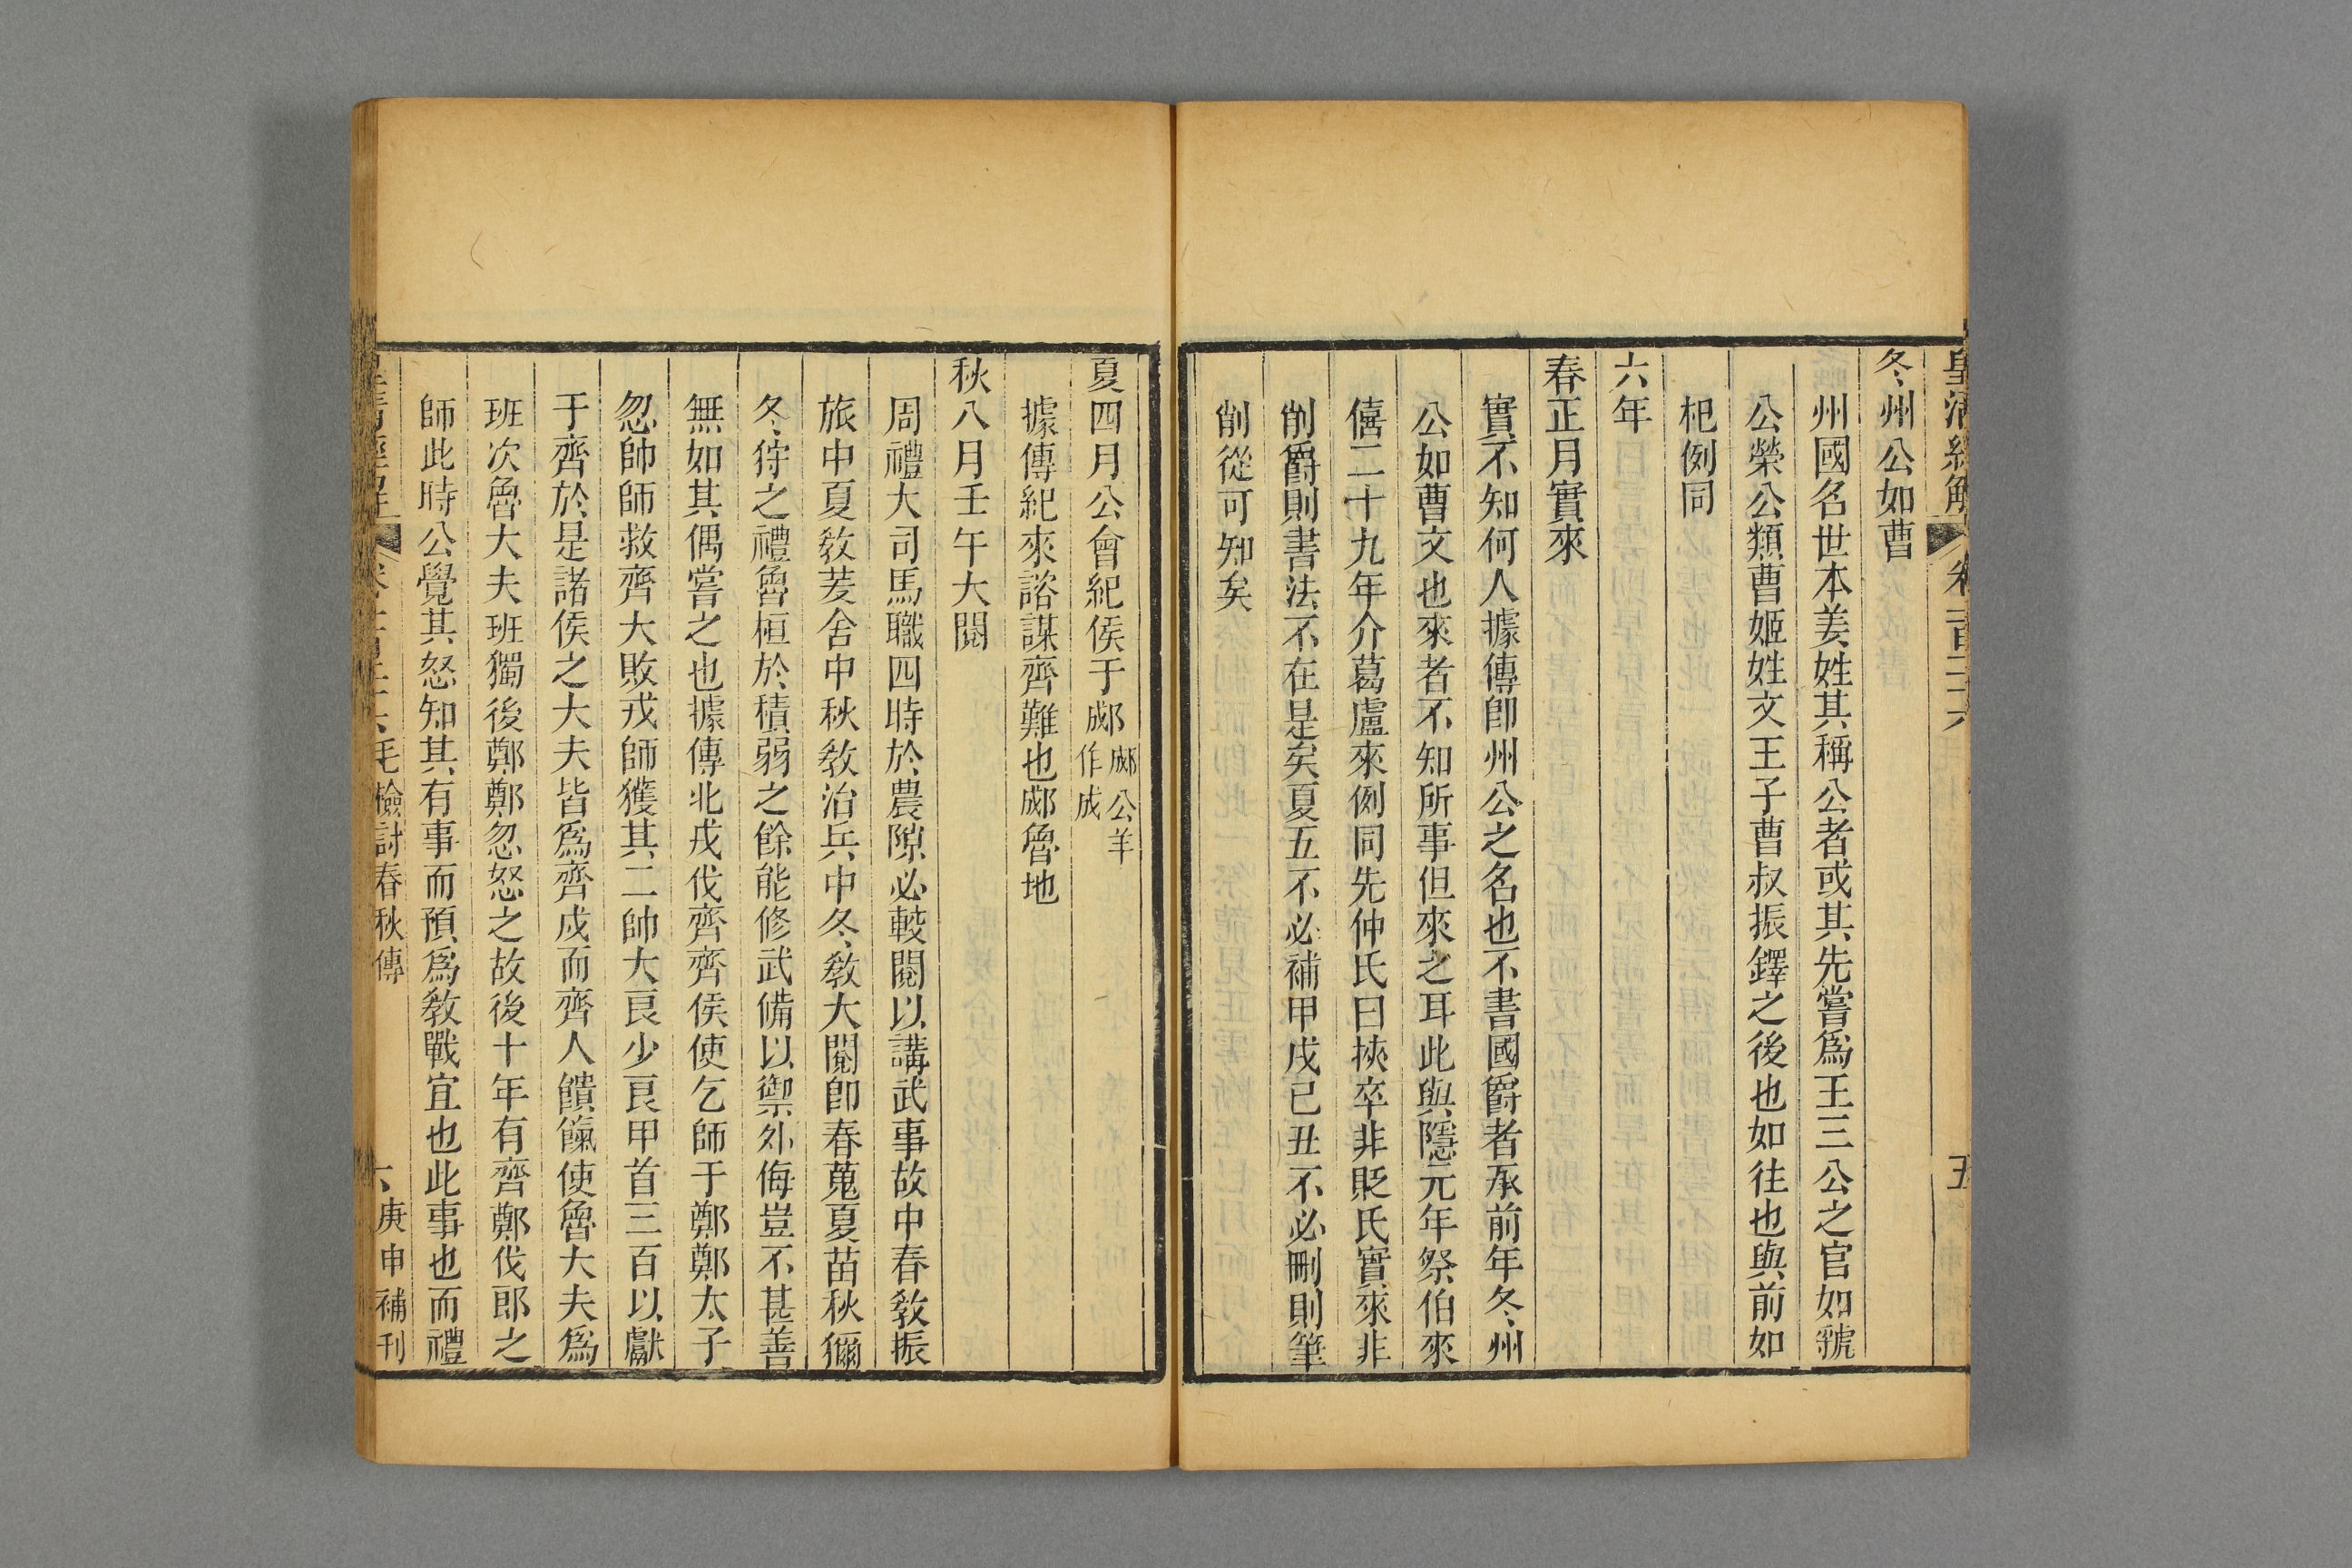 皇清經解 卷一百二十六 五
冬州公如曹
州國名世本姜姓其稱公者或其先嘗爲王三公之官如虢
公榮公類曹姬姓文王子曹叔振鐸之後也如往也與前如
杞例同
六年
春正月實來
實不知何人據傳卽州公之名也不書國爵者承前年冬州
公如曹文也來者不知所事但來之耳此與隱元年祭伯來
僖二十九年介葛盧來例同先仲氏曰挾卒非貶氏實來非
削爵則書法不在是矣夏五不必補甲戌已丑不必刪則筆
削從可知矣
夏四月公會紀侯于郕郕公羊作成
據傳紀來諮謀齊難也郕魯地
秋八月壬午大閱
周禮大司馬職四時於農隙必較閱以講武事故中春敎振
旅中夏敎茇舍中秋敎治兵中冬敎大閱卽春蒐夏苗秋獮
冬狩之禮魯桓於積弱之餘能修武備以禦外侮豈不甚善
無如其偶嘗之也據傳北戎伐齊齊侯使乞師于鄭鄭太子
忽帥師救齊大敗戎師獲其二帥大良少良甲首三百以獻
于齊於是諸侯之大夫皆爲齊戍而齊人饋餼使魯大夫爲
班次魯大夫班獨後鄭鄭忽怒之故後十年有齊鄭伐郎之
師此時公覺其怒知其有事而預爲敎戰宜也此事也而禮
皇清經解 卷一百二十六 毛檢討春秋傳 六 庚申補刊